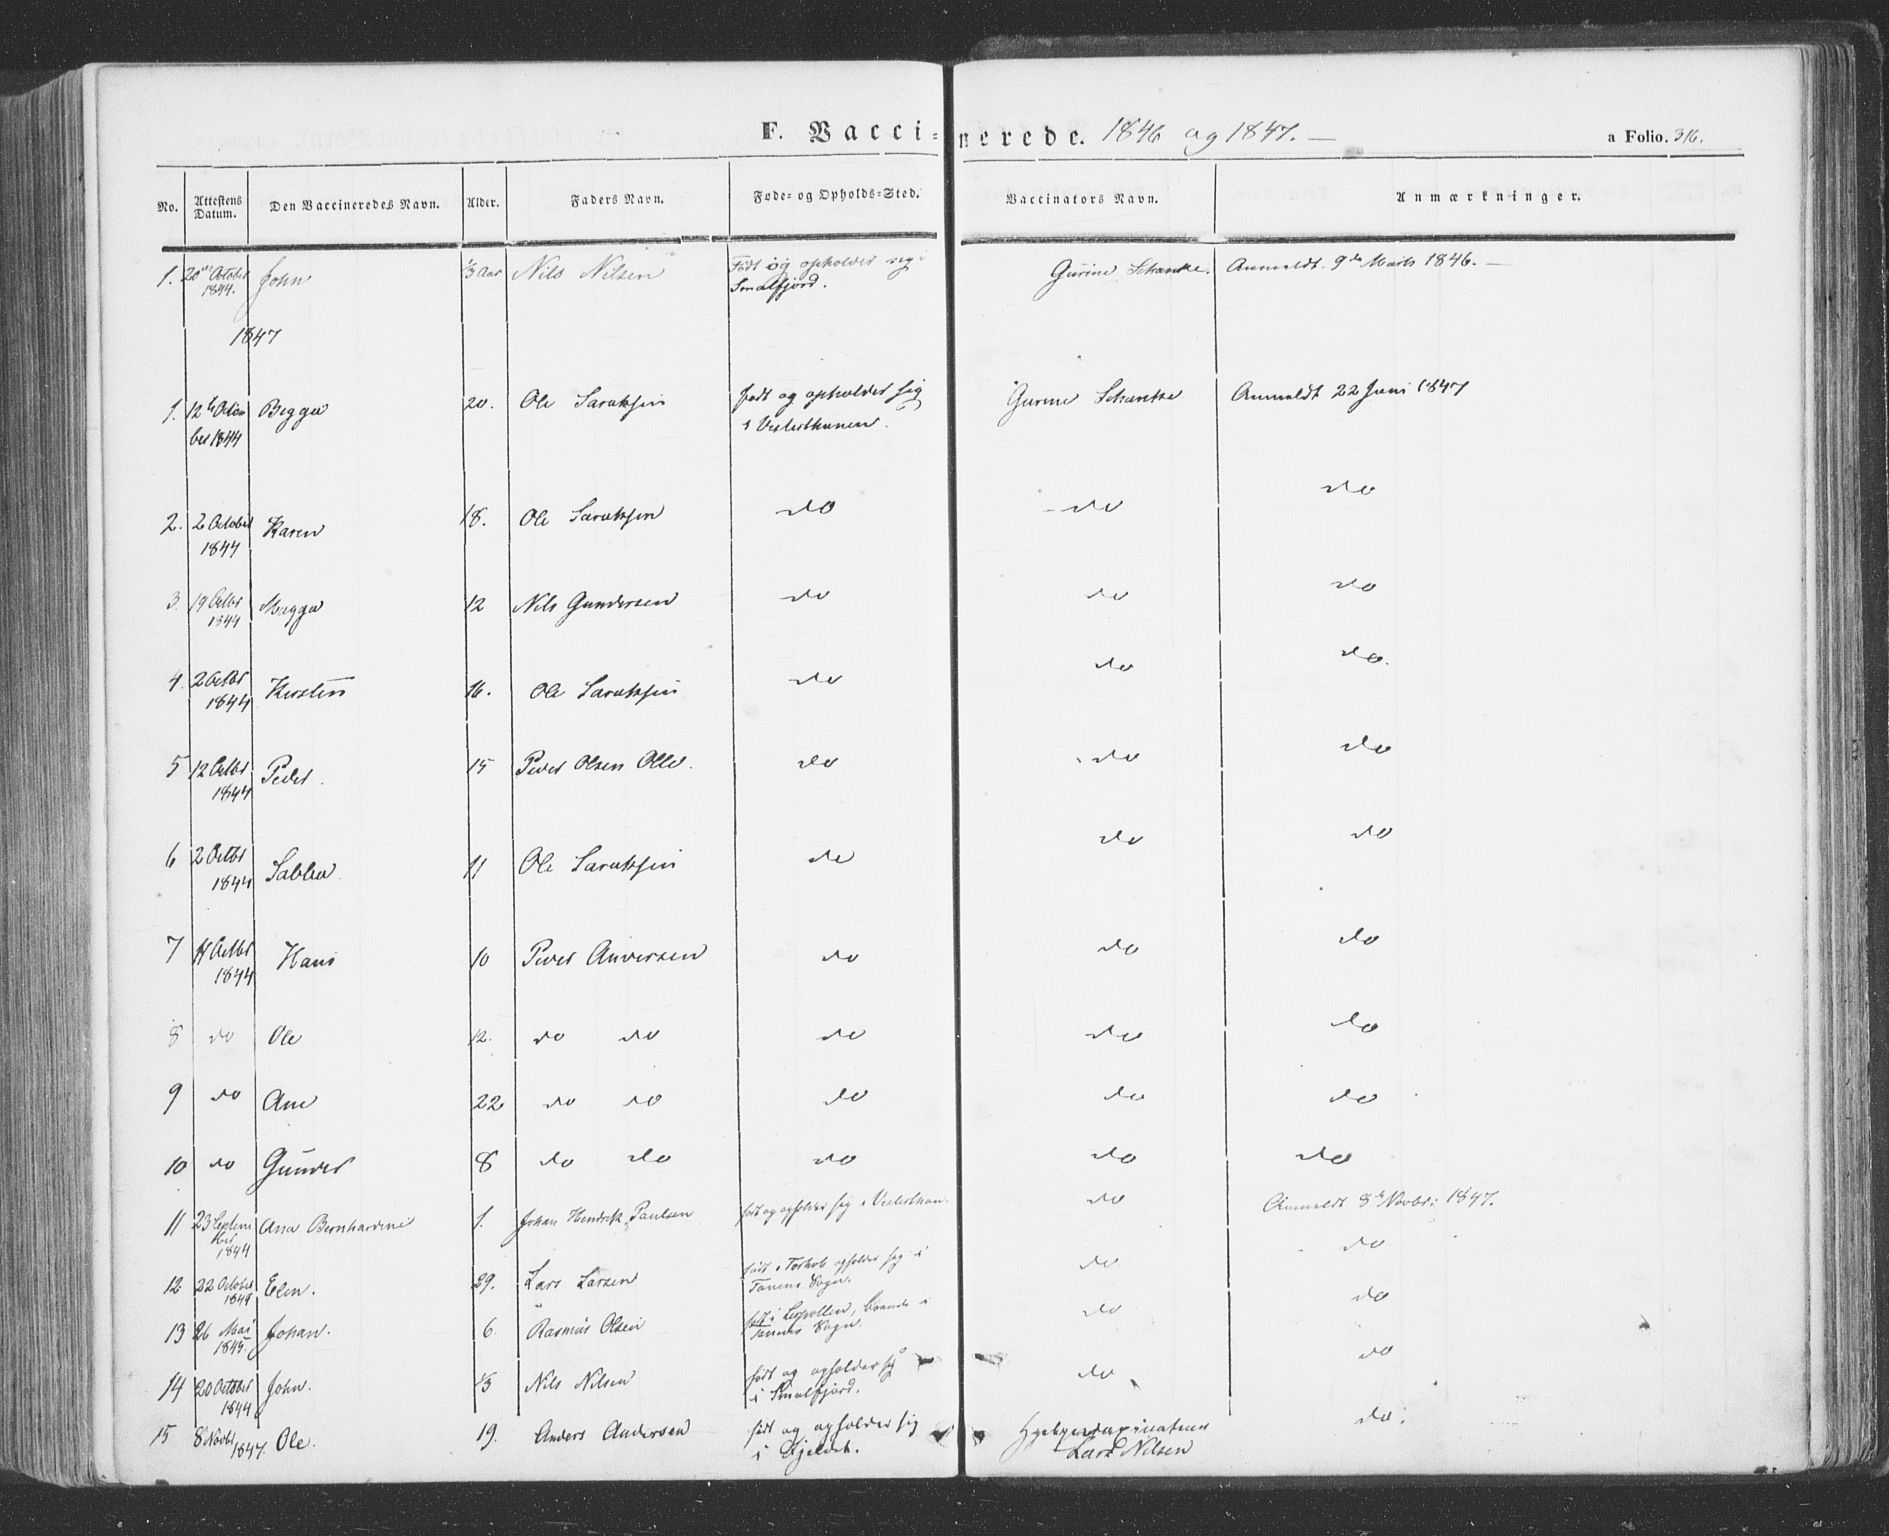 F. Vaccinerede. 1846 og 1847. —
a Folio. 316.
No. Attestens Datum. Den Vaccineredes Navn. Alder. Faders Navn. Føde- og Opholds-Sted. Vaccinators Navn. Anmærkninger.
1. 20de October John 1/3 Aar Nils Nilsen Født og opholder sig i Gurine Schanke. Anmeldt. 9de Marts 1846. —
1844. Smalfjord.
1847
1. 12te Octo Bigga 20. Ole Saraksen født og opholder sig Gurine Schanke Anmeldt 22 Juni 1847
ber 1844 i Vestertanen
2. 2 October Karen 18. Ole Saraksen do do do
1844
3. 19 Octbr Magga 12 Nils Gundersen do do do
1844
4. 2 Octbr Kirsten 16. Ole Saraksen do do do.
1844
5 12 Octbr Peder. 15 Peder Olsen do do do
1844
6 2 Octbr Sabba 11 Ole Saraksen do do do
1844
7 14 Octbr Hans 10 Peder Andersen do do do
1844
8 do Ole 12. do do do do do
9 do Ane 22 do do do do do
10 do Gunder 8 do do do do do
11 23 Septem Ana Bernhardine 1. Johan Hendrik Paulsen født og opholder sig i Vestertan. do Anmeldt 8de Novbr: 1847.
ber
1844
12 22 October Elen. 29. Lars Larsen født i opholder sig i do do
1844 Tanens Sogn.
13 26 Mai Johan. 6. Rasmus Olsen født i Leipollen, boende i do do
1845 Tanens Sogn.
14 20 October John. 1/3 Nils Nilsen født og opholder sig do do
1844 i Smalfjord.
15 8 Novbr Ole. 19. Anders Andersen født og opholder sig do.
1847. i Lars Nilsen